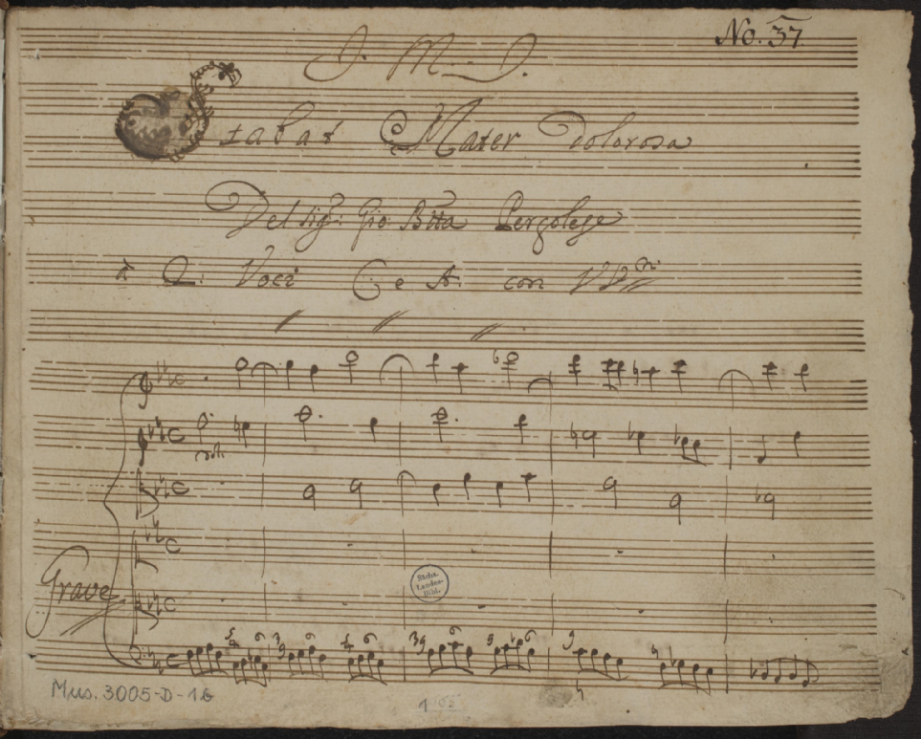 No. 37
J. M. J.
Stabat Mater Dolorosa
Del Sig.r Gio Btta Pergolese
à 2. Voci C e A. con VV.ni
Grave
Sächs.
Landes-
Bibl.
Mus. 3005-D-1b
1